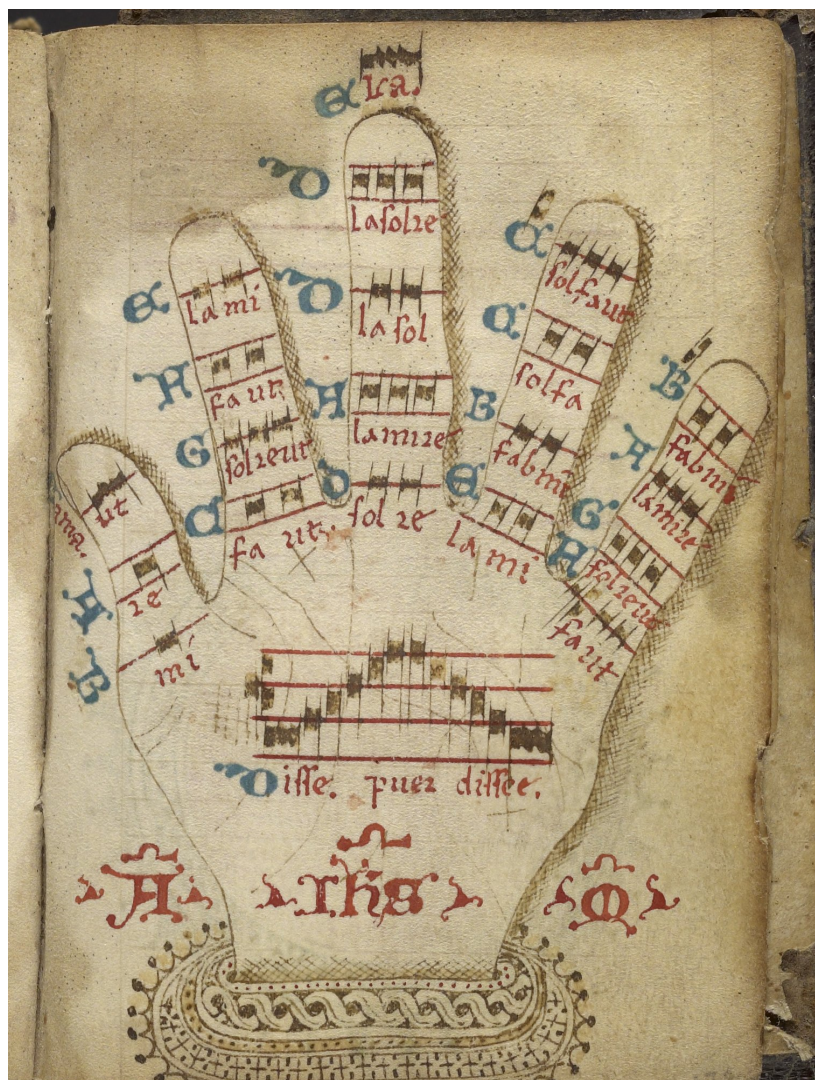 E La.
D lasolre
D la sol
A lamire
D sol re
E la mi
F fa ut
G solreut
C fa ut.
C solfaut
C solfa
B fabmi
E la mi
B fabmi
A lamire
G solreut
F faut
ut
ma.
A re
B mi
Disse. puer dissce.
A Ihs